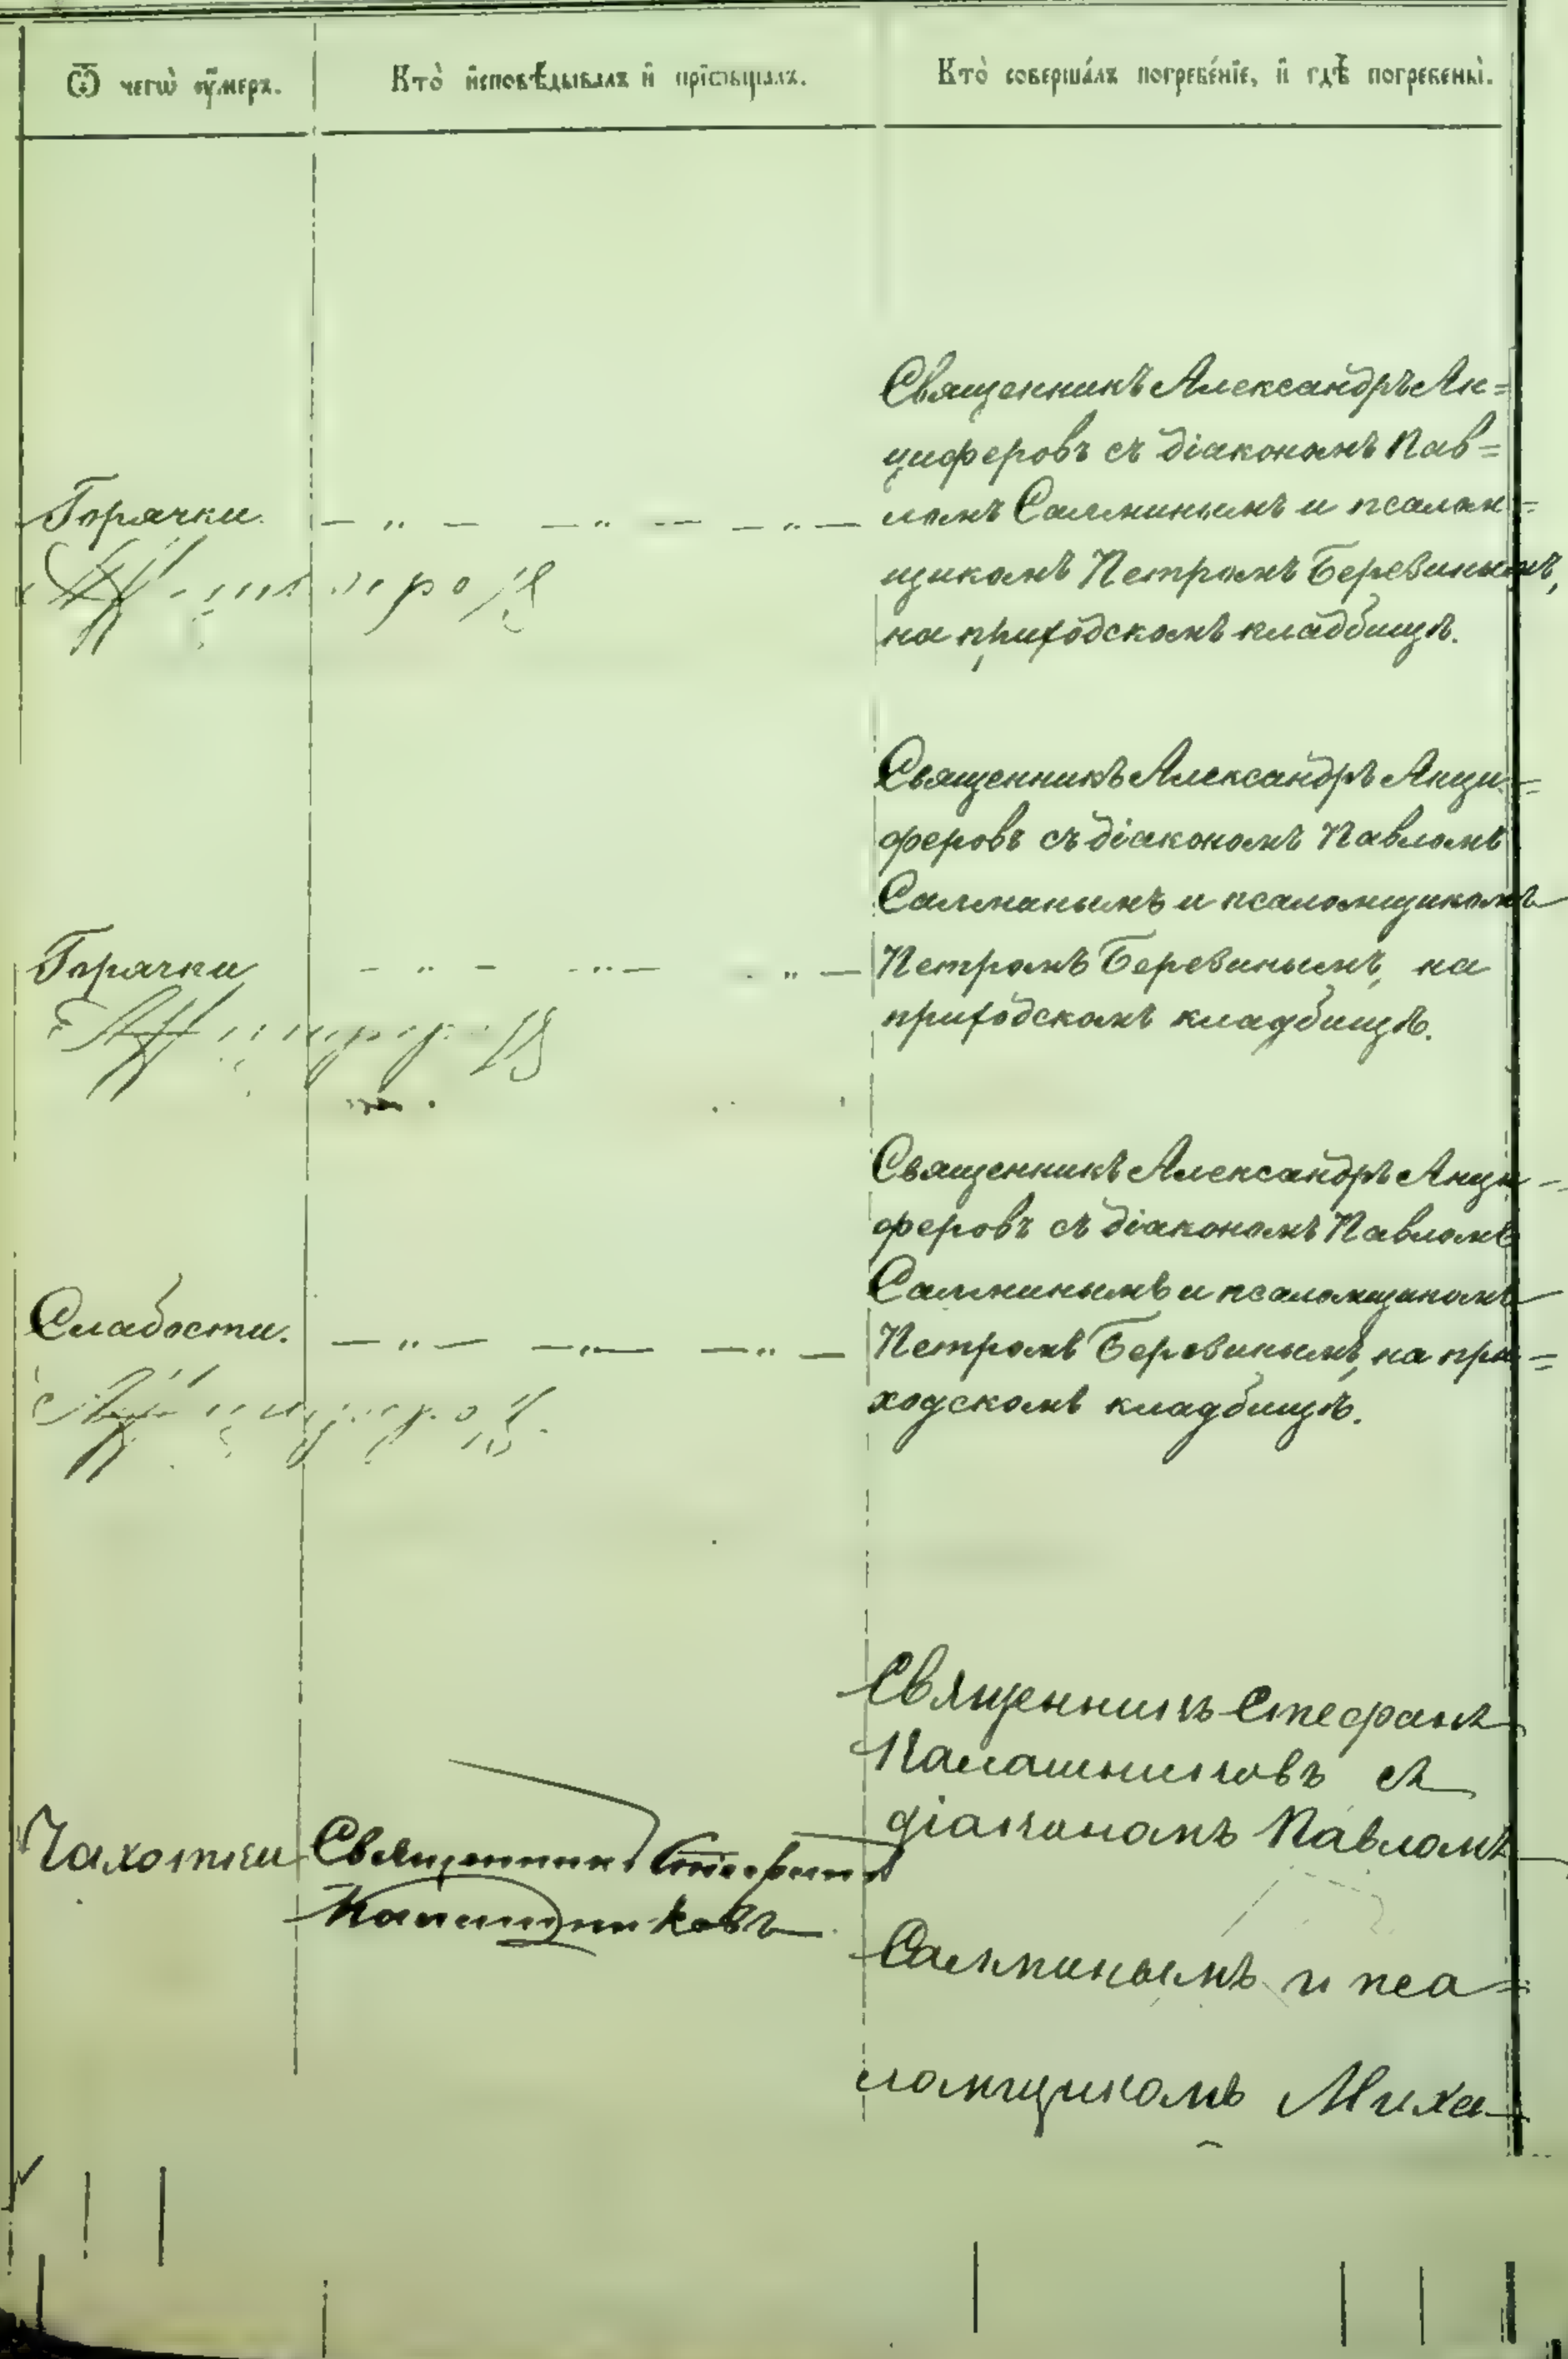 Ѿ чегѡ̀ ᲂу҆́меръ.
Кто̀ и҆сповѣ́дывалъ и҆ прїѡбща́лъ.
Кто̀ соверша́лъ погребе́нїе, и҆ гдѣ̀ погребены̀.
Священникъ Александръ Ан=
циферовъ съ діакономъ Пав=
ломъ Салминымъ и псалом=
щикомъ Петромъ Беревинымъ,
на приходскомъ кладбищѣ.
Горячки. — „ — — „ — — „ —
Священникъ Александръ Анци=
феровъ съ діакономъ Павломъ
Салминымъ и псаломщикомъ
Петромъ Беревинымъ, на
приходскомъ кладбищѣ.
Горячки — „ — — „ — „ —
Священникъ Александръ Анци=
феровъ съ діакономъ Павломъ
Салминымъ и псаломщикомъ
Петромъ Беревинымъ, на при=
ходскомъ кладбищѣ.
Слабости. — „ — — „ — — „ —
Священникъ Стефанъ
Калашниковъ съ
діакономъ Павломъ
Салминымъ и пса=
ломщикомъ Миха-
Чахотки
Священникъ Стефанъ
Калашниковъ